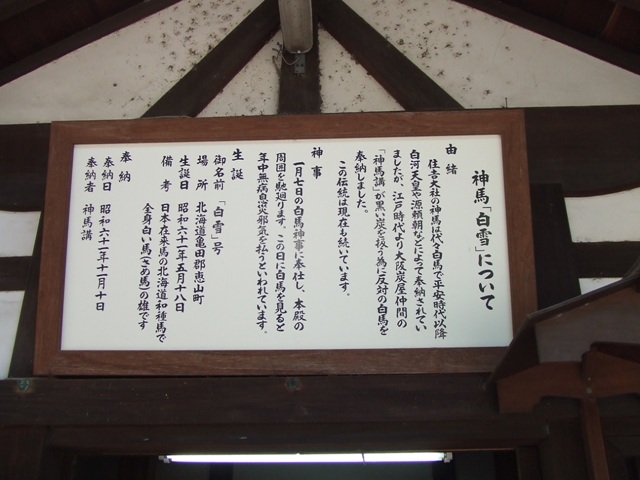 神馬「白雪」について
由緒
住吉大社の神馬は代々白馬で平安時代以降
白河天皇や源頼朝などによって奉納されてい
ましたが、江戸時代より大阪炭屋仲間の
「神馬講」が黒い炭を扱う為に反対の白馬を
奉納しました。
この伝統は現在も続いています。
神事
一月七日の白馬神事に奉仕し、本殿の
周囲を馳廻ります。この日に白馬を見ると
年中無病息災邪気を払うといわれています。
生誕
御名前 「白雪」号
場所 北海道亀田郡恵山町
生誕日 昭和六十二年五月十八日
備考 日本在来馬の北海道和種馬で
全身白い馬(さめ馬)の雄です
奉納
奉納日 昭和六十二年十一月十日
奉納者 神馬講